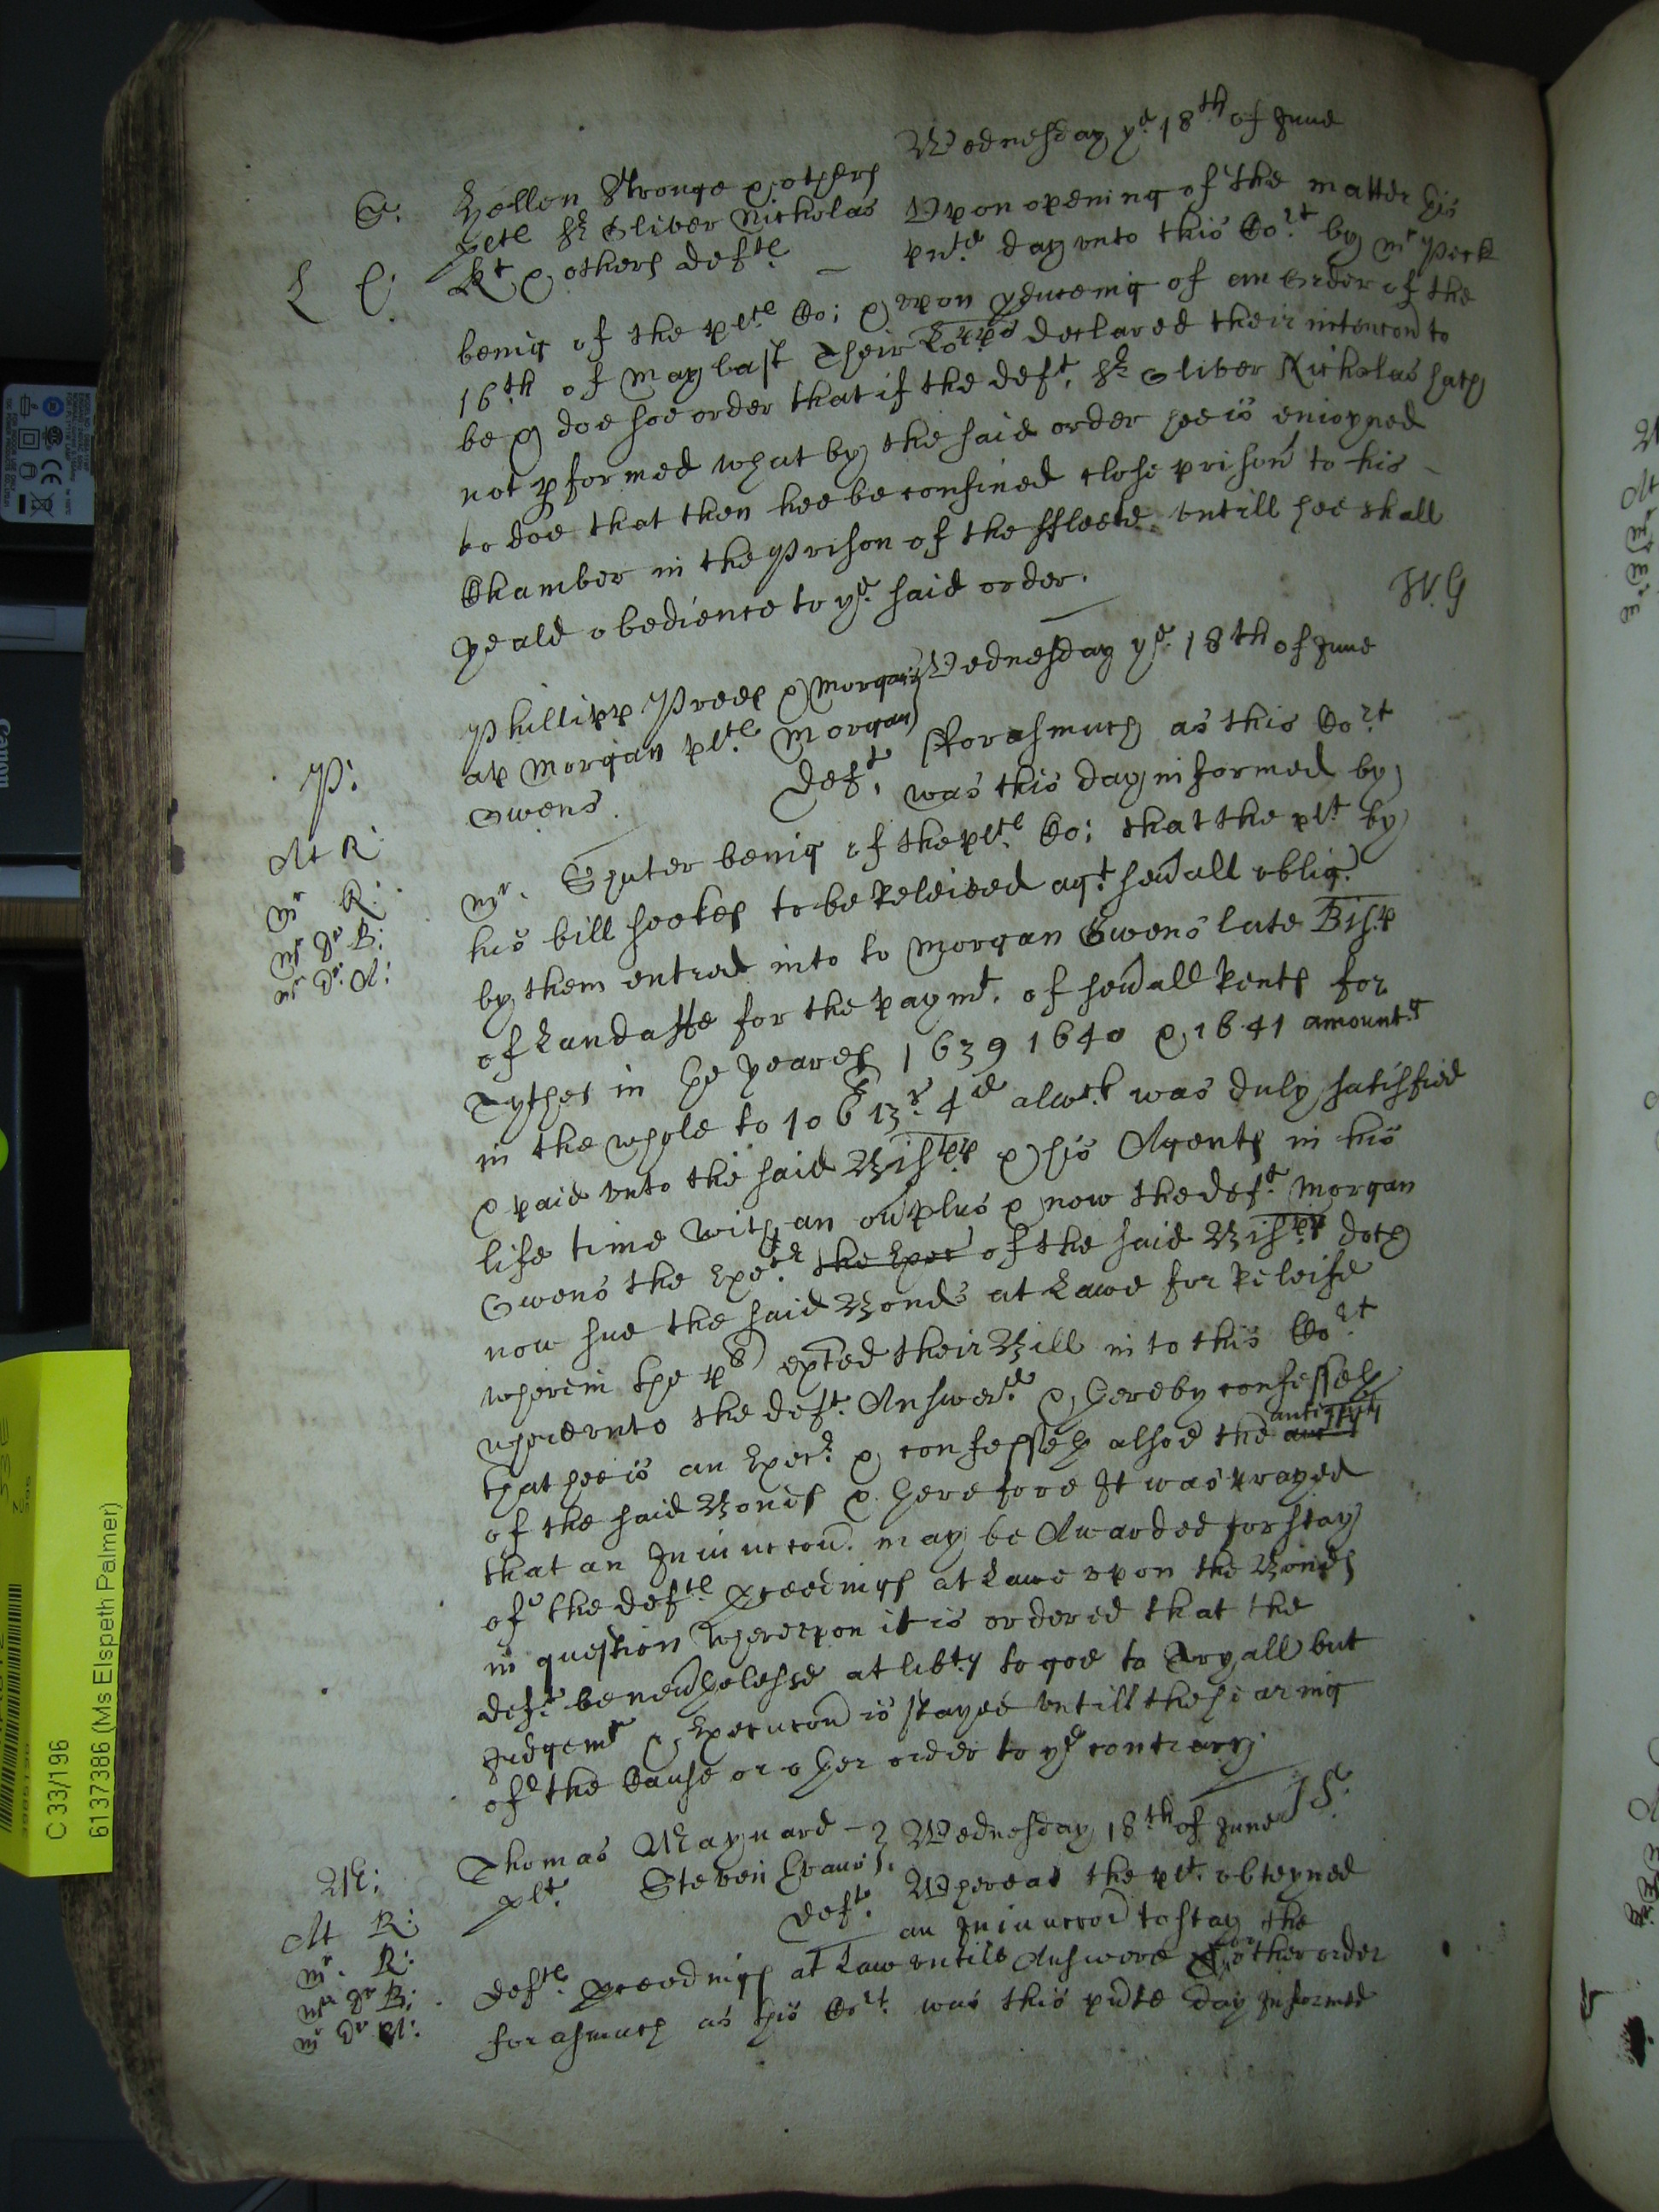 Wednesday ye. 18th of June
S. Hellen Stronge & others
pltes Sr Oliver Nicholas Upon opening of the matter this
L C: Kt & others deftes — pnte. day unto this Cort by mr Peck
being of the pltes Co: & upon pduceing of an Order of the
16th of May last Their Lopps declared their intencon to
be & doe soe order that if the deft. Sr Oliver Nicholas hath
not pformed what by the said order hee is enioyned
to doe that then hee be confined close prisonr to his
Chamber in the Prison of the ffleete untill hee shall
yeald obedience to ye. said order.
W.G
Phillipp Prees & Morgan Wednesday ye. 18th of June
ap Morgan pltes Morgan
P: Owens. deft. fforasmuch as this Cort
At R: was this day informed by
mr R: mr. being of the pltes Co: that the plt by
his bill seekes to be Releived agt. sevall oblig.
by them entred into to Morgan Owens late Bisp
of Landaffe for the paymt. of sevall Rents for
Tythes in the yeares 1639 1640 & 1641 amountg
in the whole to 106l 13s. 4d was duly satisfied
& paid unto the said Bispp & his Agents in his
life time with an ovplus & now the deft. Morgan
Owens the Exetr. the Exec of the said Bispp doth
now sue the said Bonds at Lawe for Releife
wherein the ps exhted their Bill into this Cort
whereunto the deft. Answered & thereby confesseth
that hee is an Execr. & confesseth alsoe the antiquity
of the said Bonds & therefore It was prayed
that an Iniunccon. may be Awarded for stay
of the deftes pceedings at Lawe upon the Bonds
in question Whereupon it is ordered that the
deft. be nevthelesse at libty to goe to Tryall but
Judgemt & Execucon is stayed untill the hearing
of the Cause or other order to ye contrary.
JS.
M: Thomas Maynard — Wednesday 18th of June
plt. Steven Evans. Whereas the plt. obteyned
At R: deft. an Iniunccon to stay the
mr. R: deftes. pceedings at Law untill Answere or other order
forasmuch as this Cort. was this pnte day Informed
C 33/196
61137386 (Ms Elspeth Palmer)
Canon